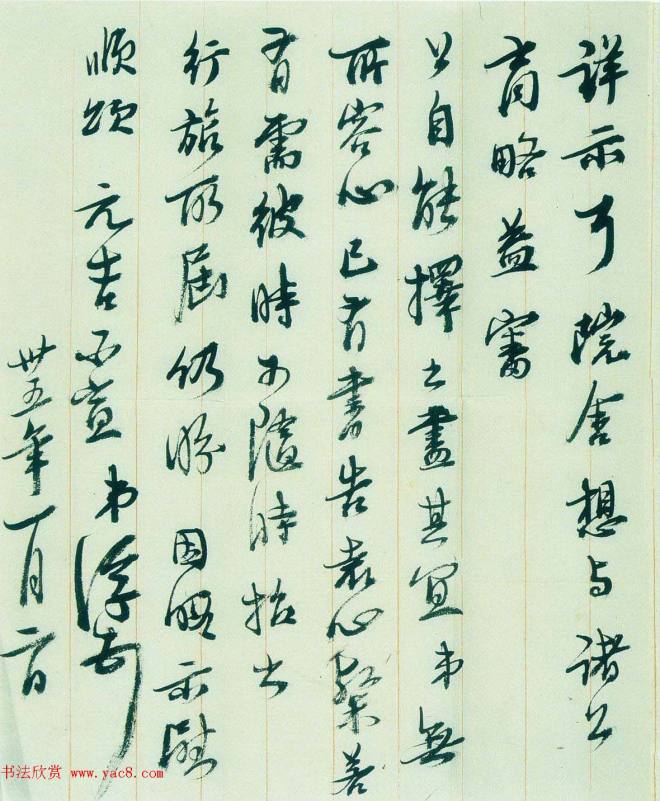 詳示了院舍想与諸公
商略益審
公自能擇之盡其宜弟無
所容心已有書告袁心粲若
有需彼時可隨時撥出
行旅所屆仍盼 因風示慰
順頌 元吉不宣 弟浮頓
卅五年一月二日
书法欣赏 www.yac8.com